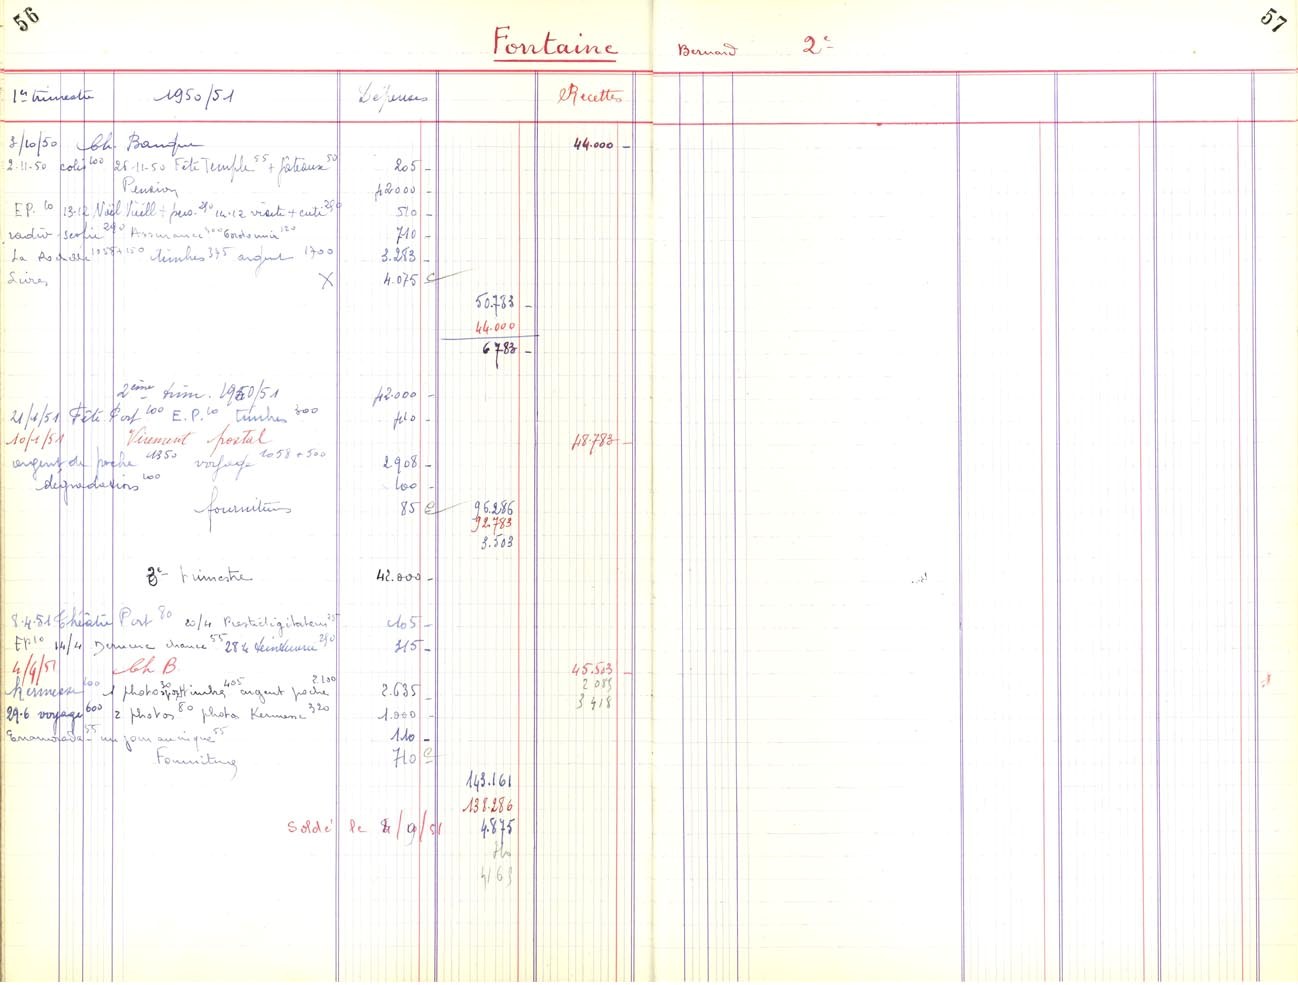 56
57
Fontaine
Bernard 2e
1er trimestre 1950/51 Dépenses Recettes
3/10/50 Ch. Banque 44.000
2.11.50 colis 100 25.11.50 Fête Temple 55 + gâteaux 50 205
Pension 42000
EP. 10 13.12 Noël Vieill + 14.12 visite + cuti 510
radio 290 Assurance 300 Cordonnier 120 710
La 1058 + 150 timbres 375 argent 1700 3.283
Livres X 4.075
50.783
44.000
6783
2ème trim. 1950/51 42.000
21/1/51 Fête Port 100 E.P. 10 timbres 300 410
10/1/51 Virement postal 48.783
argent de poche 1350 voyage 1058 + 500 2908
dégradations 100 100
fournitures 85 96.286
92.783
3.503
3e trimestre 42.000
8.4.51 Théâtre Port 80 20/4 Prestidigitateur 25 105
EP. 10 14/4 Dernière chance 55 28.4 250 315
4/4/51 Ch B. 45.503
Kermesse 100 1 photo timbres 405 argent poche 2.100 2.635
2 083
29.6 voyage 600 2 photos 80 photos Kermesse 320 1.000
3 418
Enamorada 55 un jour au cirque 55 110
Fourniture 710
143.161
138.286
Soldé le /9/51 4.875
710
4163